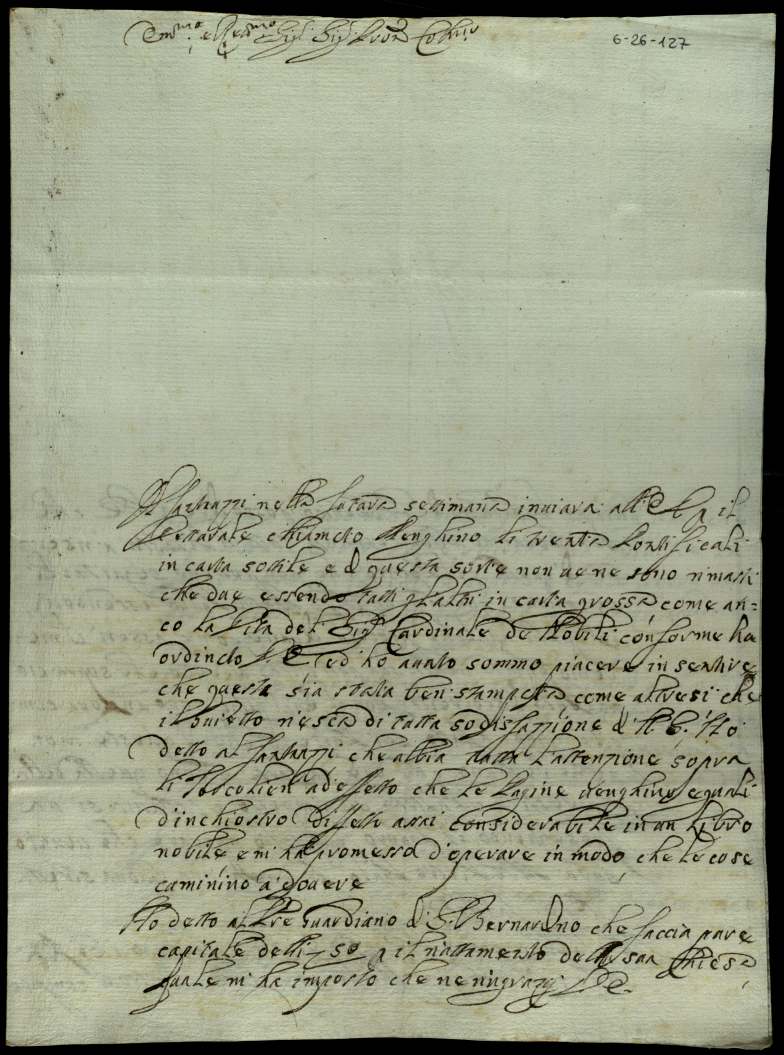 Em.mo e R.mo Sig.r Sig.r Pron Col.mo
6-26-127
Il Fantuzzi nella futura settimana inviarà all' E. V. p il
chiamato Menghino li trenta Pontificali
in carta sottile e di questa sorte non ve ne sono rimasti
che due essendo tutti gl'altri in carta grossa come an=
co la Vita del Sig.r Cardinale de Nobili conforme ha
ordinato V. E. ed hò avuto sommo piacere in sentire
che questa sia stata ben stampata come altresi che
il riesca di tutta sodisfazzione di V. E. Hò
detto al Fantuzzi che abbia tutta l'attenzione sopra
li Torcolieri ad effetto che le Pagine venghino eguali
d'inchiostro diffetto assai considerabile in un libro
nobile e mi hà promesso d'operare in modo che le cose
caminino a dovere
Hò detto al Pre Guardiano di S. Bernardino che faccia pure
capitale delli 50 p il riattamento della sua Chiesa
quale mi hà imposto che ne ringrazij V. E.